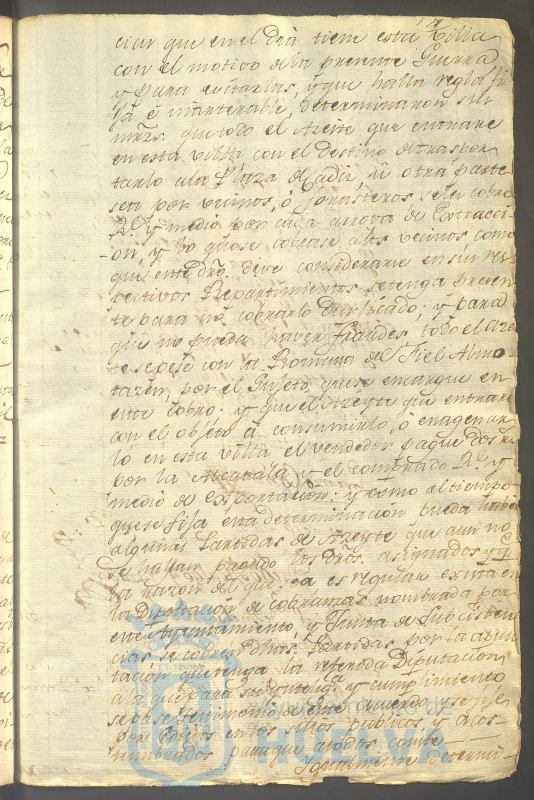 ciar que en el dia tiene esta Villa
con el motivo de la presente Guerra
y para evitarlas, y que halla regla fi
ja é inalterable, determinaron sus
mrzs. que todo el Azeite que entrare
en esta Villa con el destino de traspor
tarlo a la Plaza de Cadiz, ú otra parte
sea por vecinos, ó forasteros se le cobre
R.^s y medio por cada arrova de Extracci
on, y lo que se cobrase a los vecinos como
que este dro. deve considerarse en sus res
pectivos Repartimientos se tenga presen
te para no cobrarlo duplicado; y para
que no pueda haver fraudes, todo el Aze
te se pese con la Romana del Fiel Almo
tazen por el Sujeto que se encargue en
este cobro: y que el Azeyte que entrare
con el objeto de consumirlo, ó enagenar
lo en esta Villa el vendedor pague dos R.^s
por la Alcavala y el comprador R.^l y
medio de exportacion: y como al tiempo
que se fija esta determinacion pueda haver
algunas Partidas de Azeyte que aun no
se hallan pagado los dros. asignados y
la razon del que sea es regular exista en
la Diputacion de cobranzas nombrada por
este Ayuntamiento, y Junta de Subsisten
cias, se cobren dhas. Partidas por la
tacion que tenga la referida Diputacion
a la que para su intelig.^a y cumplimiento
se pase Testimonio de este acuerdo y se fije
por Edictos en los sitios publicos y acos
tumbrados para que a todos conste
Igualmente determi-
AYUNTAMIENTO DE
HUELVA